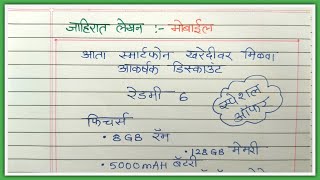 जाहिरात लेखन :- मोबाईल
आता स्मार्टफोन खरेदीवर मिळवा
आकर्षक डिस्काउंट
रेडमी 6
स्पेशल
ऑफर
फिचर्स
• 8GB रॅम
• 128GB मेमरी
• 5000mAH बॅटरी